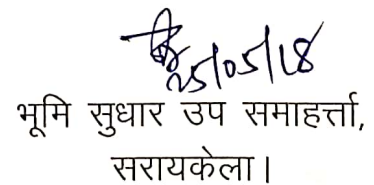 25/05/18
भूमि सुधार उप समाहर्त्ता,
सरायकेला।